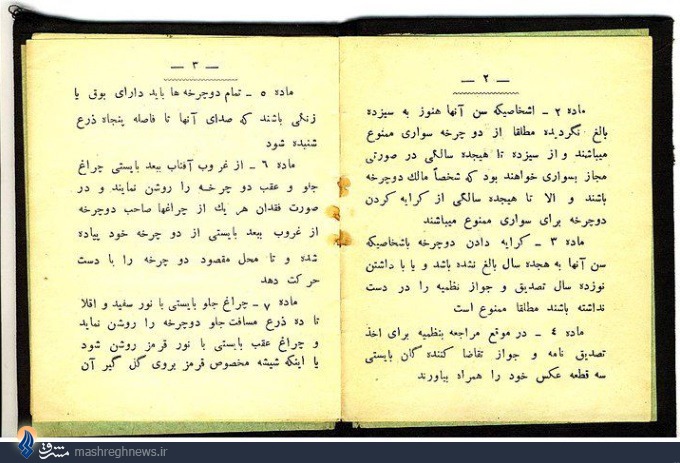 — ۲ —
ماده ۲ ـ اشخاصیکه سن آنها هنوز به سیزده
بالغ نگردیده مطلقا از دو چرخه سواری ممنوع
میباشند و از سیزده تا هیجده سالگی در صورتی
مجاز بسواری خواهند بود که شخصاً مالك دوچرخه
باشند و الا تا هیجده سالگی از کرایه کردن
دوچرخه برای سواری ممنوع میباشند
ماده ۳ ـ کرایه دادن دوچرخه باشخاصیکه
سن آنها به هجده سال بالغ نشده باشد و یا با داشتن
نوزده سال تصدیق و جواز نظمیه را در دست
نداشته باشند مطلقا ممنوع است
ماده ٤ ـ در موقع مراجعه بنظمیه برای اخذ
تصدیق نامه و جواز تقاضا کننده گان بایستی
سه قطعه عکس خود را همراه بیاورند
— ۳ —
ماده ۵ ـ تمام دوچرخه ها باید دارای بوق یا
زنگی باشند که صدای آنها تا فاصله پنجاه ذرع
شنیده شود
ماده ۶ ـ از غروب آفتاب ببعد بایستی چراغ
جلو و عقب دو چرخه را روشن نمایند و در
صورت فقدان هر یك از چراغها صاحب دوچرخه
از غروب ببعد بایستی از دو چرخه خود پیاده
شده و تا محل مقصود دو چرخه را با دست
حرکت دهد
ماده ۷ ـ چراغ جلو بایستی با نور سفید و اقلا
تا ده ذرع مسافت جلو دوچرخه را روشن نماید
و چراغ عقب بایستی با نور قرمز روشن شود
یا اینکه شیشه مخصوص قرمز بروی گل گیر آن
مشرق mashreghnews.ir